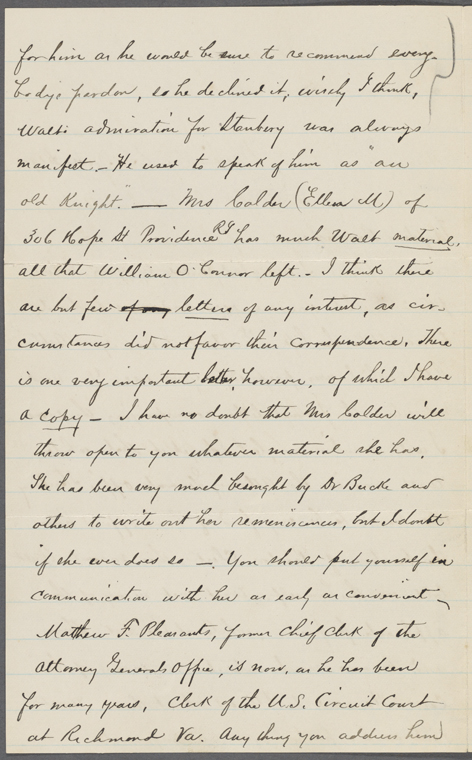 for him as he would be sure to recommend every-
body's pardon, so he declined it, wisely I think,
Walt's admiration for Stanbery was always
manifest. – He used to speak of him as "an
old Knight." — Mrs Calder (Ellen M.) of
306 Hope St Providence RI has much Walt material,
all that William O'Connor left. – I think there
are but few of any letters of any interest, as cir-
cumstances did not favor their correspondence. There
is one very important letter, however, of which I have
a copy – I have no doubt that Mrs Calder will
throw open to you whatever material she has.
She has been very much besought by Dr Bucke and
others to write out her reminiscences, but I doubt
if she ever does so –. You should put yourself in
communication with her as early as convenient –
Mathew F. Pleasants, former chief clerk of the
Attorney Generals Office, is now, as he has been
for many years, Clerk of the U.S. Circuit Court
at Richmond Va. Any thing you address him